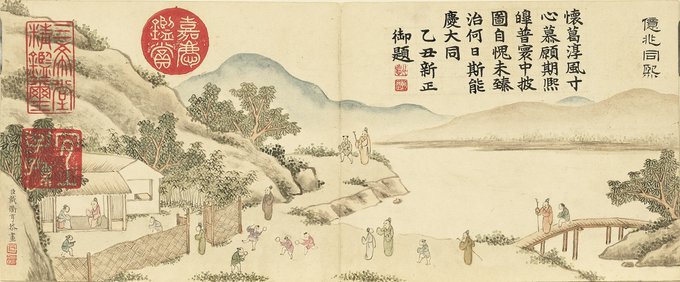 億兆同熙
懷葛淳風寸
心慕顧期熙
皞普寰中披
圖自愧未臻
治何日斯能
慶大同
乙丑新正
御題
嘉慶鑑賞
三希堂精鑑璽
宜子孫
臣戴衢亨恭畫